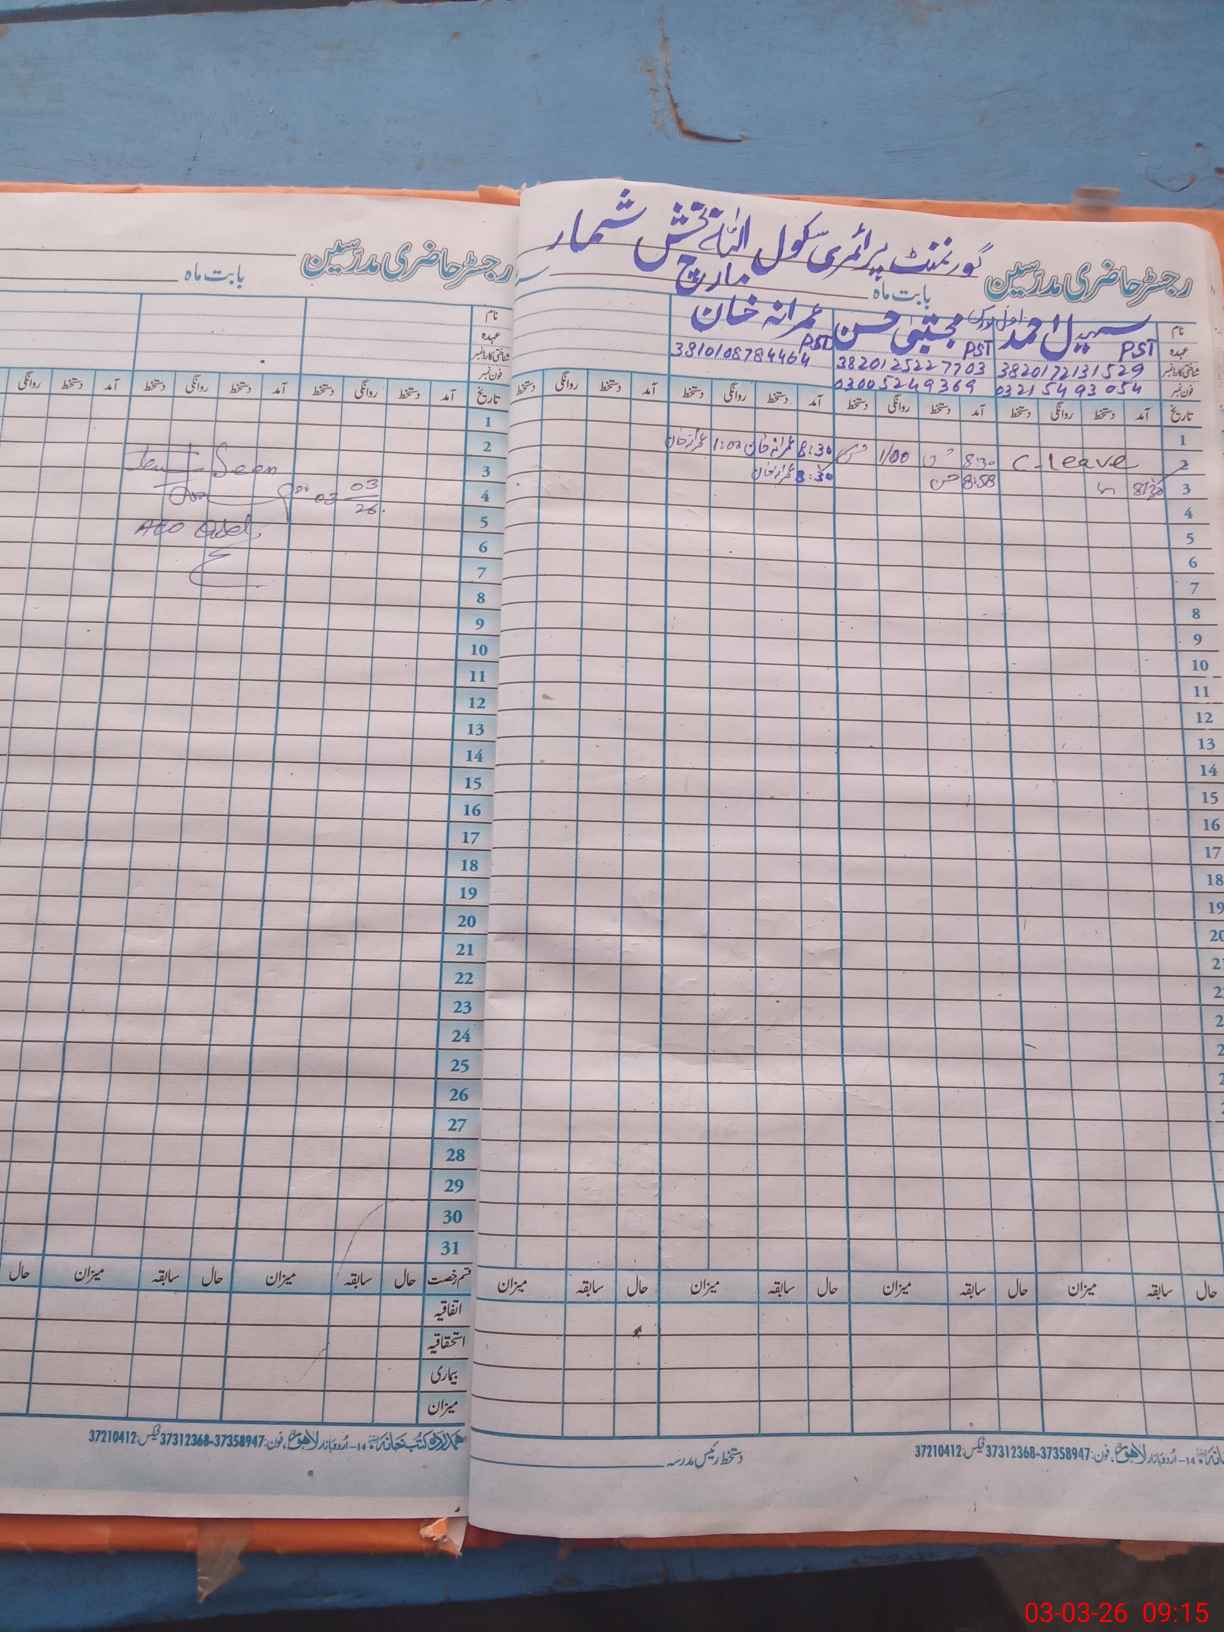 گورنمنٹ پرائمری سکول
شمار
رجسٹر حاضری مدرسین
بابت ماہ
مارچ
نام
سہیل احمد
مجتبیٰ حسن
عمرانہ خان
عہدہ
PST
PST
PST
شناختی کارڈ نمبر
3820172131529
3820125227703
3810108784464
فون نمبر
03215493054
03005249369
تاریخ
آمد دستخط روانگی دستخط آمد دستخط روانگی دستخط آمد دستخط روانگی دستخط آمد دستخط روانگی دستخط
1
2 C-leave 8:30 1/00 8:30 عمرانہ خان 1:00 عمرانہ خان
3 8:30 8:58 8:30 عمرانہ خان
4
5
6
7
8
9
10
11
12
13
14
15
16
17
18
19
حال سابقہ میزان حال سابقہ میزان حال سابقہ میزان حال سابقہ میزان
دستخط رئیس مدرسہ
14-اُردو بازار لاہور، فون: 37358947-37312368 فیکس: 37210412
رجسٹر حاضری مدرسین
بابت ماہ
نام
عہدہ
شناختی کارڈ نمبر
فون نمبر
تاریخ آمد دستخط روانگی دستخط آمد دستخط روانگی دستخط آمد دستخط روانگی
1
2
3
Seen
4
03
03
26.
5
AEO
6
7
8
9
10
11
12
13
14
15
16
17
18
19
20
21
22
23
24
25
26
27
28
29
30
31
قسم رخصت حال سابقہ میزان حال سابقہ میزان حال
اتفاقیہ
استحقاقیہ
بیماری
میزان
ہمدرد کتب خانہ 14-اُردو بازار لاہور، فون: 37358947-37312368 فیکس: 37210412
03-03-26 09:15